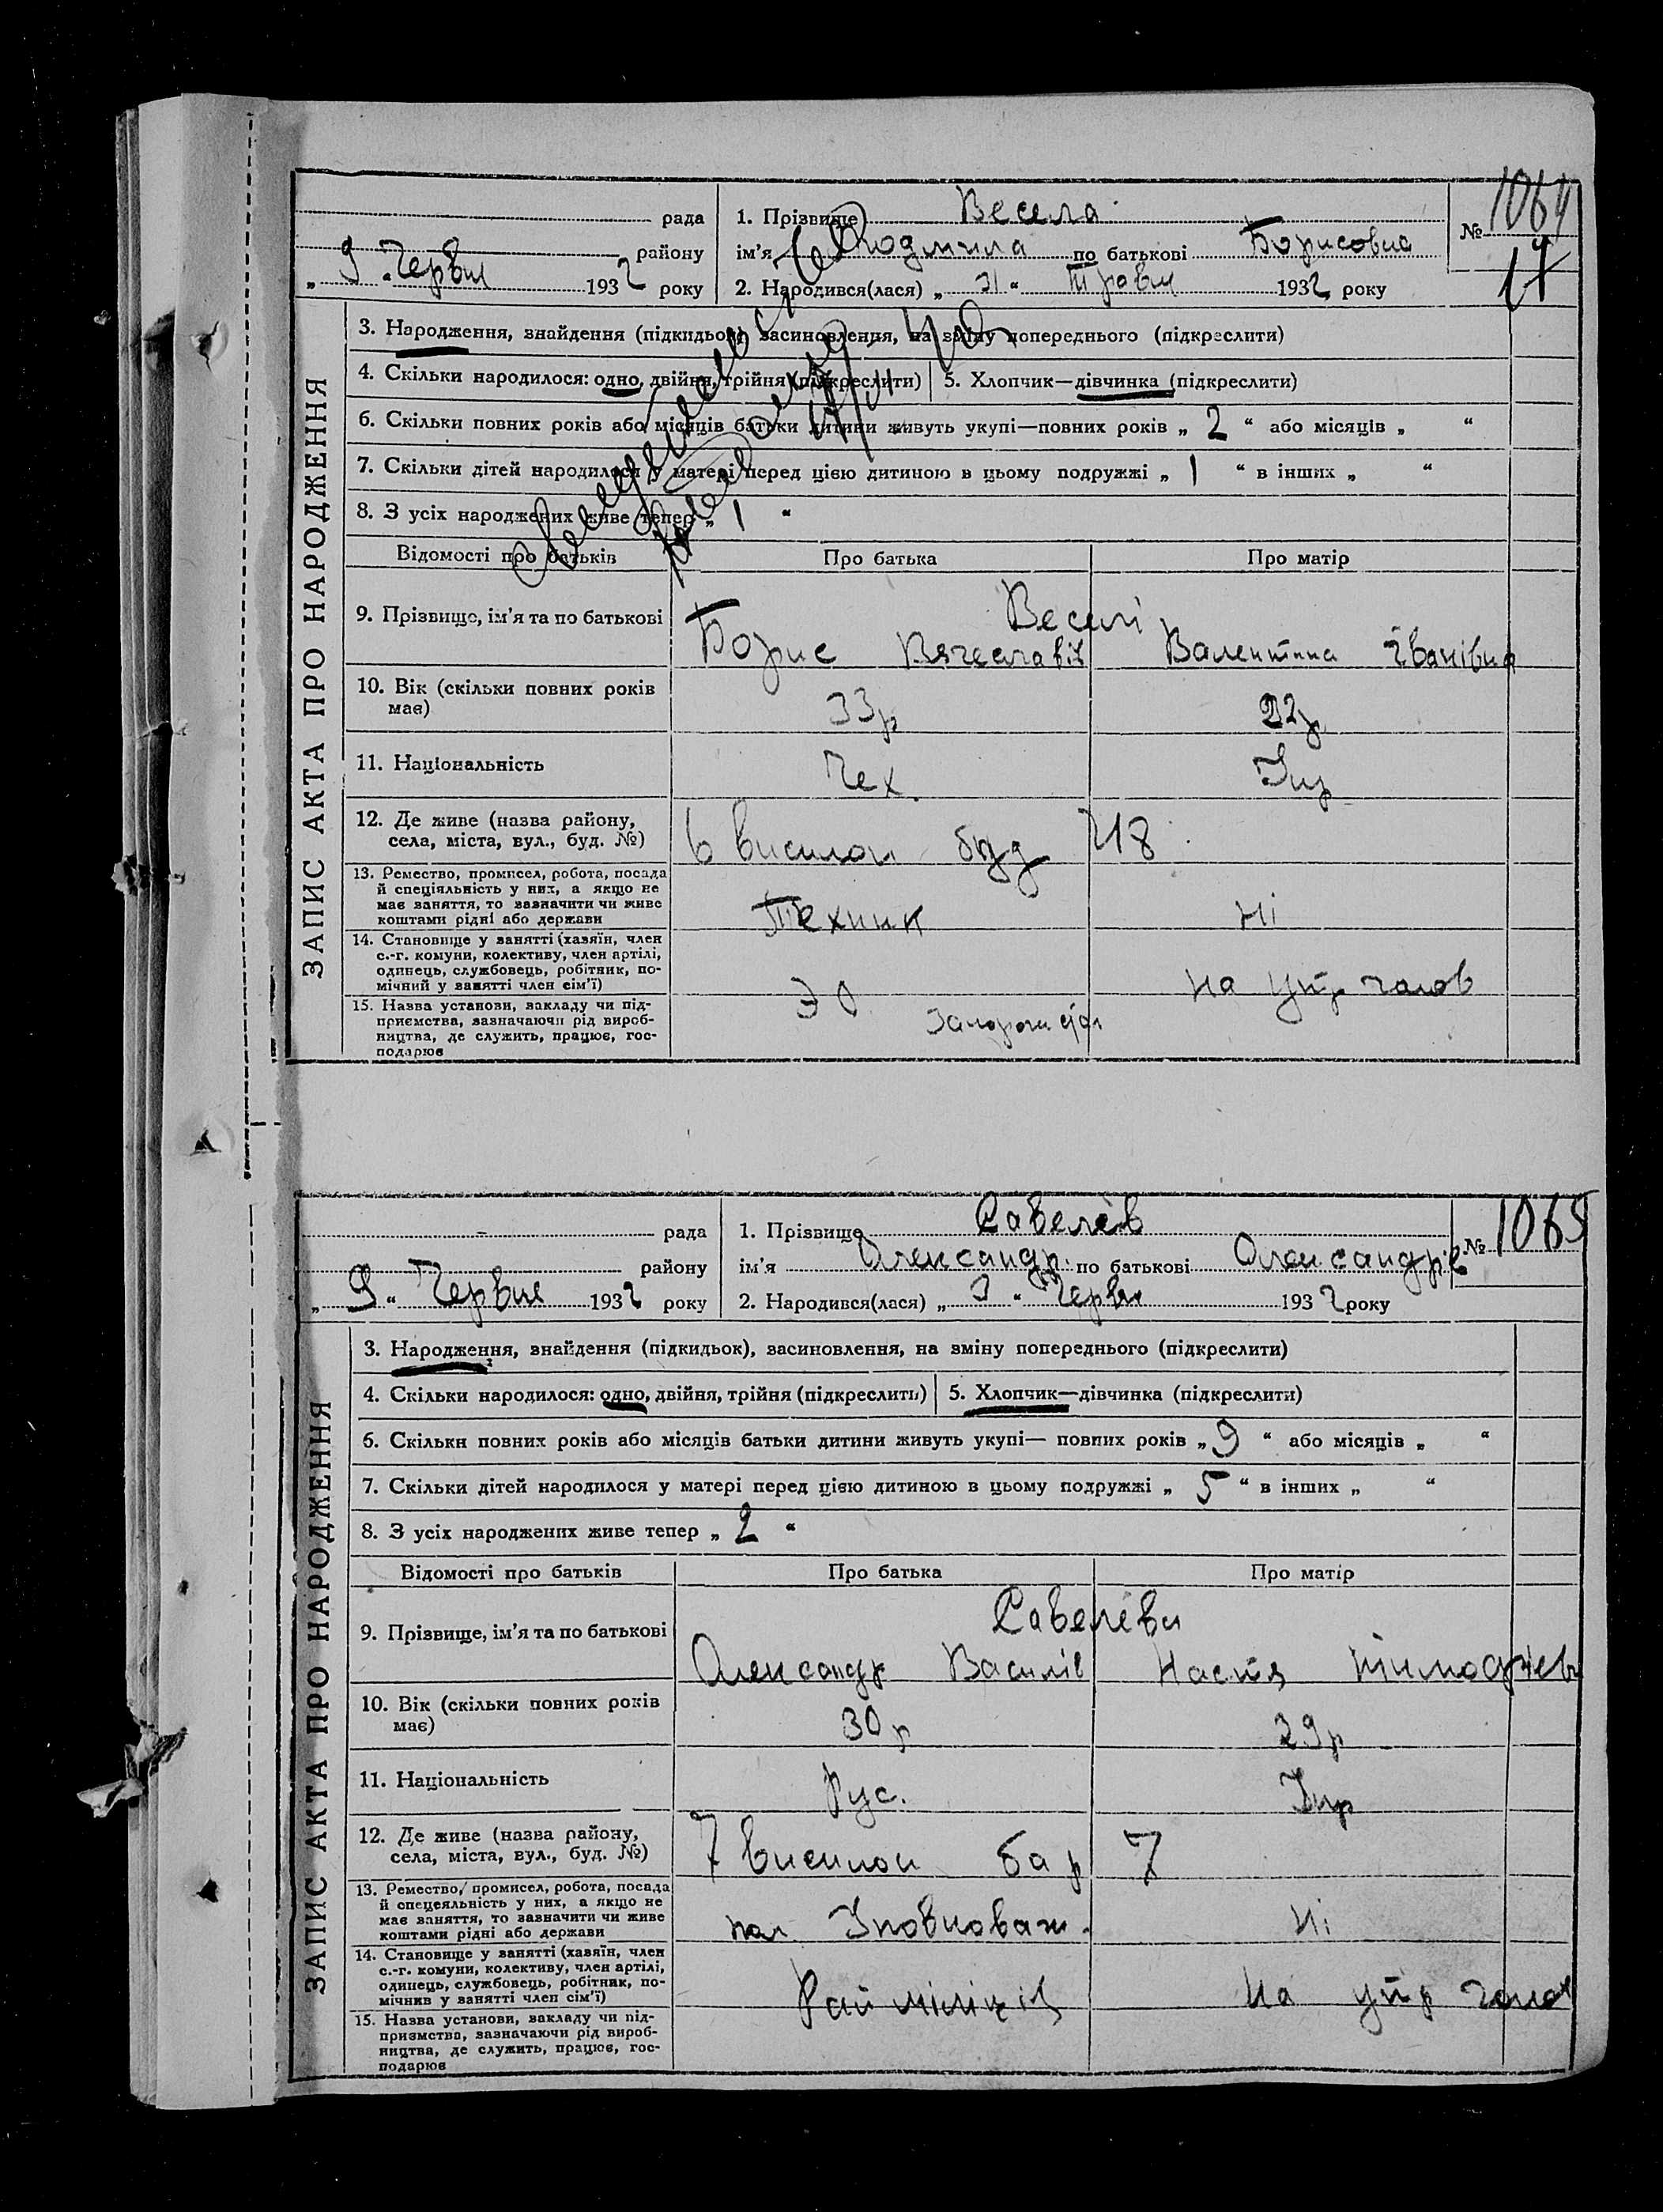 рада
1. Прізвище Весела
№ 1064
17
району
ім'я Людмила по батькові Борисовна
„ 9 " Червн 1932 року
2. Народився(лася) „ 31 " Травн 1932 року
ЗАПИС АКТА ПРО НАРОДЖЕННЯ
3. Народження, знайдення (підкидьок), засиновлення, на зміну попереднього (підкреслити)
4. Скільки народилося: одно, двійня, трійня (підкреслити)
5. Хлопчик—дівчинка (підкреслити)
6. Скільки повних років або місяців батьки дитини живуть укупі—повних років „ 2 " або місяців „ "
7. Скільки дітей народилося у матері перед цією дитиною в цьому подружжі „ 1 " в інших „ "
8. З усіх народжених живе тепер „ 1 "
Відомості про батьків
Про батька
Про матір
9. Прізвище, ім'я та по батькові
Веселі
Борис Вячеславів
Валентина Іванівна
10. Вік (скільки повних років
має)
33р
22р
11. Національність
Чех.
Укр
12. Де живе (назва району,
села, міста, вул., буд. №)
6 виселок буд 218
13. Ремество, промисел, робота, посада
й спеціяльність у них, а якщо не
має заняття, то зазначити чи живе
коштами рідні або держави
Технік
Ні
14. Становище у занятті (хазяїн, член
с.-г. комуни, колективу, член артілі,
одинець, службовець, робітник, по-
мічний у занятті член сім'ї)
на утр чолов
15. Назва установи, закладу чи під-
приємства, зазначаючи рід вироб-
ництва, де служить, працює, гос-
подарює
рада
1. Прізвище Савелєв
№ 1065
району
ім'я Олександр. по батькові Олександрів
„ 9 " Червня 1932 року
2. Народився(лася) „ 3 " Червн 1932 року
ЗАПИС АКТА ПРО НАРОДЖЕННЯ
3. Народження, знайдення (підкидьок), засиновлення, на зміну попереднього (підкреслити)
4. Скільки народилося: одно, двійня, трійня (підкреслить)
5. Хлопчик—дівчинка (підкреслити)
6. Скільки повних років або місяців батьки дитини живуть укупі— повних років „ 9 " або місяців „ "
7. Скільки дітей народилося у матері перед цією дитиною в цьому подружжі „ 5 " в інших „ "
8. З усіх народжених живе тепер „ 2 "
Відомості про батьків
Про батька
Про матір
9. Прізвище, ім'я та по батькові
Савелєви
Олександр Василів
Настя Тимофієв
10. Вік (скільки повних років
має)
30р
29р
11. Національність
Рус.
Укр
12. Де живе (назва району,
села, міста, вул., буд. №)
7 виселок бар 7
13. Ремество, промисел, робота, посада
й спецеяльність у них, а якщо не
має заняття, то зазначити чи живе
коштами рідні або держави
Уповноваж.
Ні
14. Становище у занятті (хазяїн, член
с.-г. комуни, колективу, член артілі,
одинець, службовець, робітник, по-
мічнив у занятті член сім'ї)
Рай міліція
на утр чолов
15. Назва установи, закладу чи під-
приємства, зазначаючи рід вироб-
ництва, де служить, працює, гос-
подарює